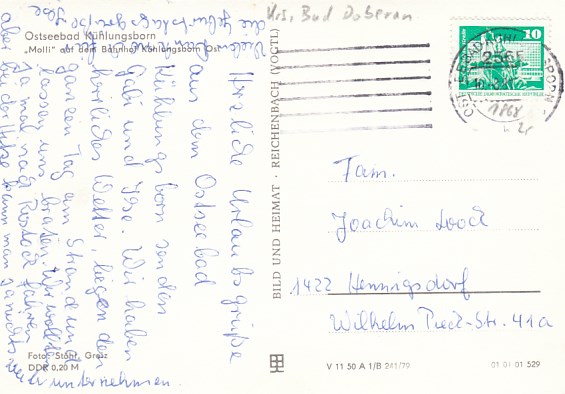 Ostseebad Kühlungsborn
"Molli" auf dem Bahnhof Kühlungsborn Ost
Krs. Bad Doberan
Viele Herzliche Urlaubsgrüße
aus dem Ostseebad
Kühlungsborn senden
Gabi und Ilse. Wir haben
herrliches Wetter, liegen den
ganzen Tag am Strand und
lassen uns braten. Wir wollten
ja mal nach Rostock fahren
aber bei der Hitze kann man ja nichts
unternehmen.
Foto: Stohl, Greiz
DDR 0,20 M
BILD UND HEIMAT · REICHENBACH (VOGTL)
10
2565
1868
Fam.
Joachim
1422 Hennigsdorf
Wilhelm Pieck-Str. 41a
V 11 50 A 1/B 241/79
01 01 01 529